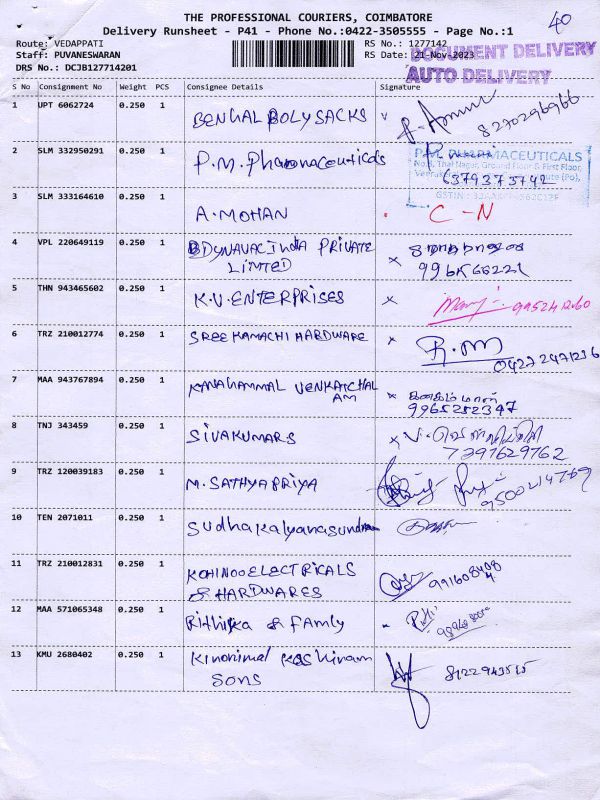 THE PROFESSIONAL COURIERS, COIMBATORE
40
Delivery Runsheet - P41 - Phone No.:0422-3505555 - Page No.:1
Route: VEDAPPATI
RS No.: 1277142
Staff: PUVANESWARAN
RS Date: 21-Nov-2023
DRS No.: DCJB127714201
DOCUMENT DELIVERY
AUTO DELIVERY
S No Consignment No Weight PCS Consignee Details Signature
1 UPT 6062724 0.250 1 BENGAL POLYSACKS
8270296966
2 SLM 332950291 0.250 1 P.M. Pharmaceuticals
P.M. PHARMACEUTICALS
Ground Floor & First Floor,
6379373742
3 SLM 333164610 0.250 1 A. MOHAN C-N
4 VPL 220649119 0.250 1 BDYNAVACINDIA PRIVATE
LIMTED
5 THN 943465602 0.250 1 K.V. ENTERPRISES
6 TRZ 210012774 0.250 1 SREE KAMACHI HARDWARE R.M
04272471236
7 MAA 943767894 0.250 1 KANAHAMMAL VENKATCHAL
AM
9965252347
8 TNJ 343459 0.250 1 SIVAKUMARS
7397629762
9 TRZ 120039183 0.250 1 M. SATHYAPRIYA
9500214769
10 TEN 2071011 0.250 1 Sudhakalyanasundram
11 TRZ 210012831 0.250 1 KOHINOOELECTRICALS
& HARDWARES
12 MAA 571065348 0.250 1 Rithika & Famly
13 KMU 2680402 0.250 1 Kinonimal Kashiram
SONS